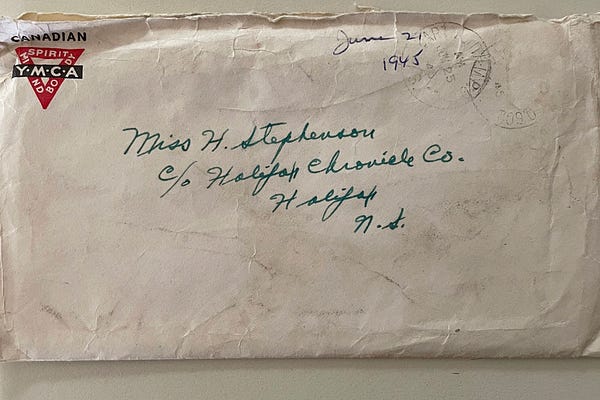 CANADIAN
SPIRIT
Y·M·C·A
MIND
BODY
June 21
1945
Miss H. Stephenson
c/o Halifax Chronicle Co.
Halifax
N.S.